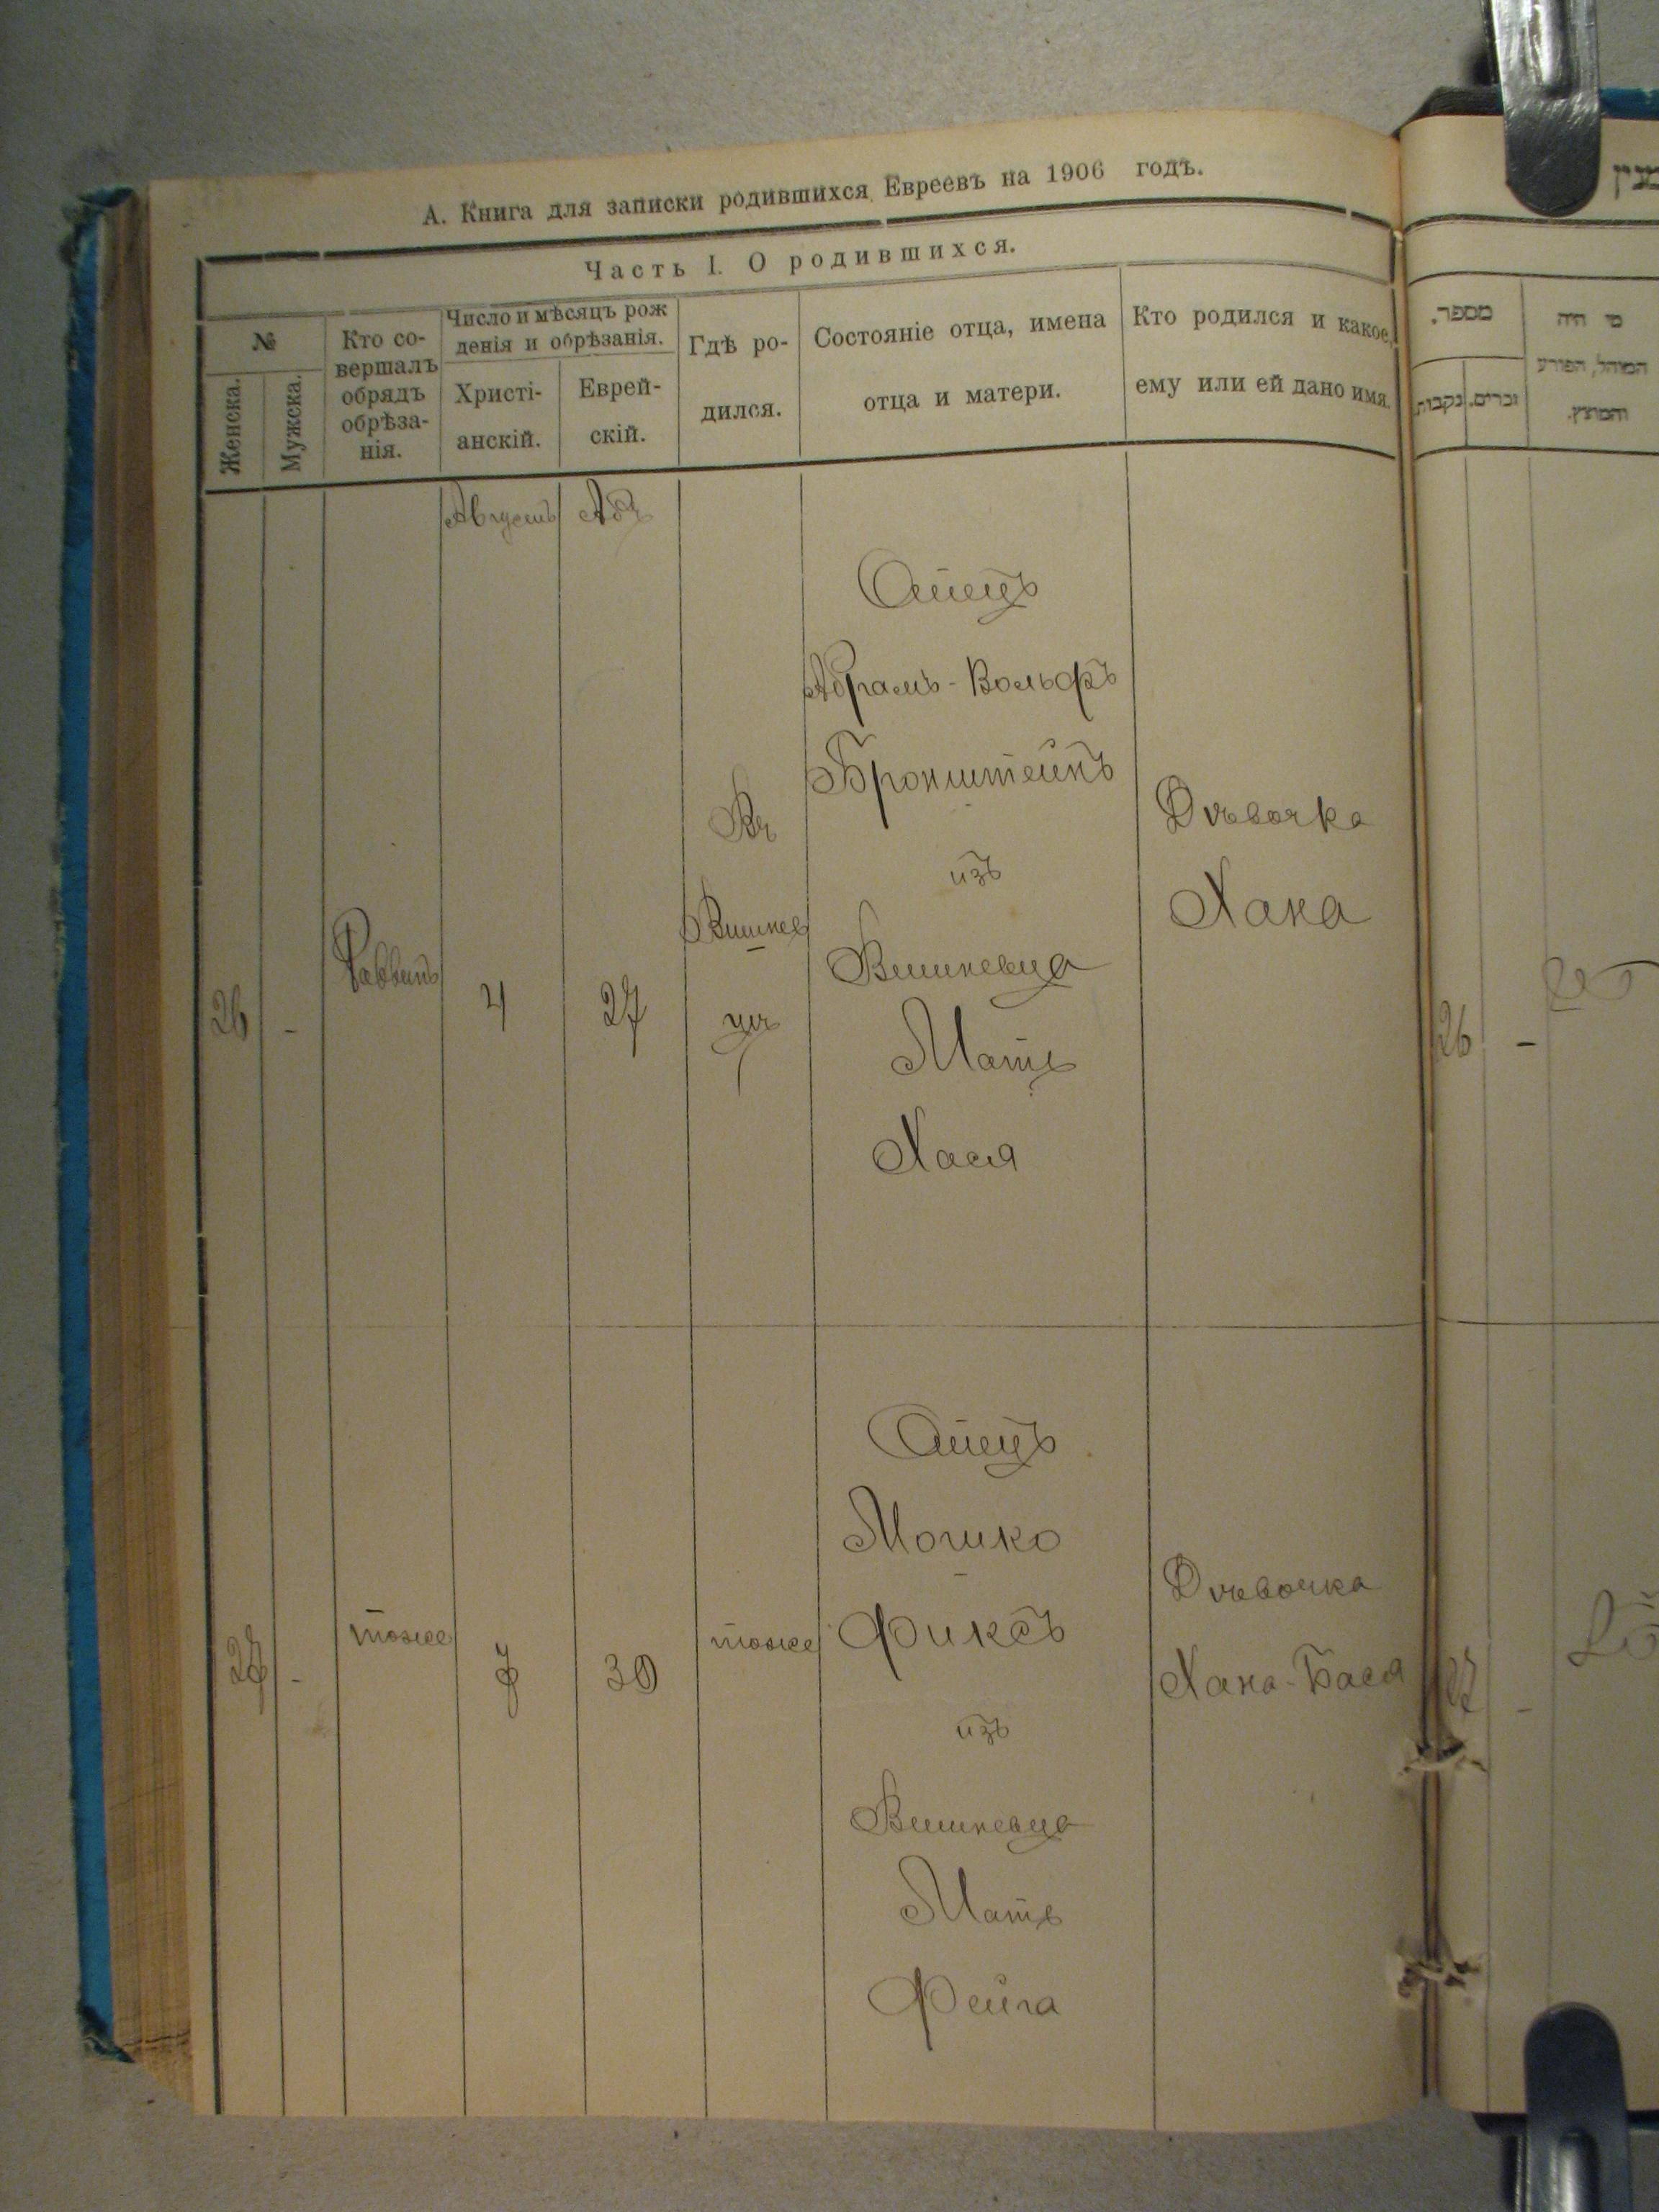 А. Книга для записки родившихся Евреевъ на 1906 годъ.
Часть I. О родившихся.
№
Женска.
Мужска.
Кто со-
вершалъ
обрядъ
обрѣза-
нія.
Число и мѣсяцъ рож
денія и обрѣзанія.
Христі-
анскій.
Еврей-
скій.
Гдѣ ро-
дился.
Состояніе отца, имена
отца и матери.
Кто родился и какое
ему или ей дано имя.
Августъ
Абъ
26
-
Раввинъ
4
27
Въ
Вишнев
цѣ
Отецъ
Абрамъ-Вольфъ
Бронштейнъ
изъ
Вишневца
Мать
Хася
Дѣвочка
Хана
27
-
тоже
7
30
тоже
Отецъ
Мошко
Фиксъ
изъ
Вишневца
Мать
Фейга
Дѣвочка
Хана-Бася
מספר.
נקבות.
זכרים.
מי היה
המוהל, הפורע
והמוצץ.
26
-
27
-